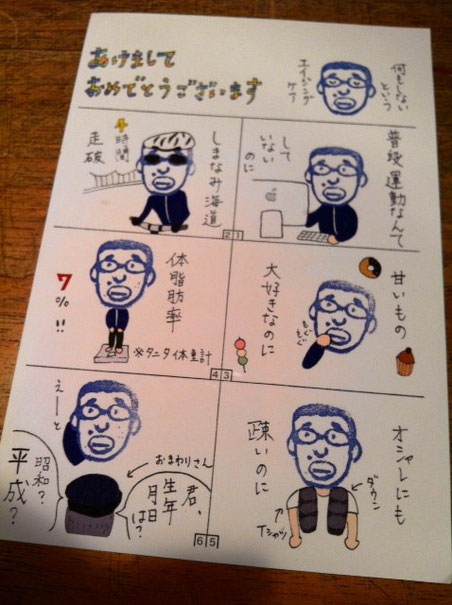 あけまして
おめでとうございます
何もしない
という
エイジング
ケア
普段運動なんて
して
いない
のに
1
しまなみ海道
4時間
走破
2
甘いもの
大好きなのに
もぐもぐ
3
体脂肪率
7%!!
※タニタ体重計
4
オシャレにも
疎いのに
ダウン
Tシャツ
5
おまわりさん
君、
生年
月日
は?
えーと
昭和?
平成?
6